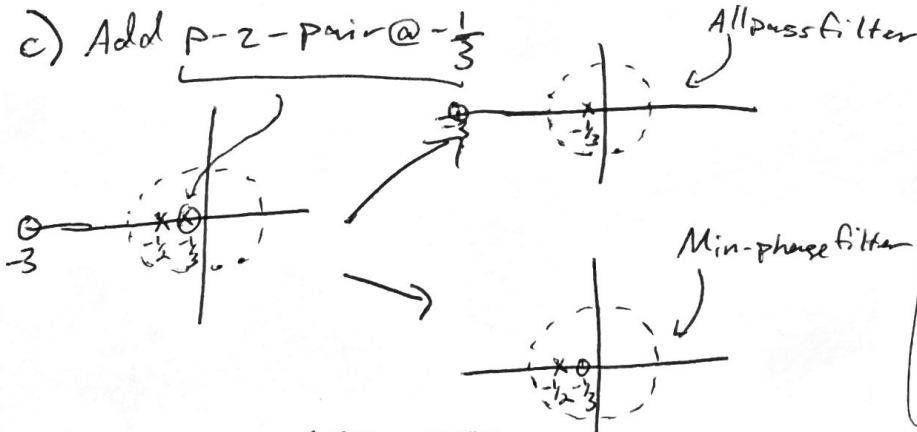 c) Add p-z-pair@ -1/3
Allpass filter
-3
-1/3
-3
-1/2
-1/3
Min-phase filter
-1/2
-1/3